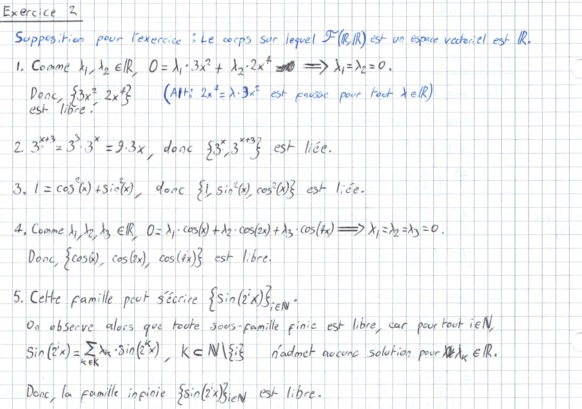 Exercice 2
Supposition pour l'exercice : Le corps sur lequel F(R,R) est un espace vectoriel est R.
1. Comme λ₁, λ₂ ∈ R, 0 = λ₁·3x² + λ₂·2x⁴ ⟹ λ₁=λ₂=0.
Donc, {3x², 2x⁴} (Alt: 2x⁴ = λ·3x² est fausse pour tout λ∈R)
est libre.
2. 3^(x+3) = 3³·3^x = 9·3x, donc {3^x, 3^(x+3)} est liée.
3. 1 = cos²(x) + sin²(x), donc {1, sin²(x), cos²(x)} est liée.
4. Comme λ₁, λ₂, λ₃ ∈ R, 0 = λ₁·cos(x) + λ₂·cos(2x) + λ₃·cos(4x) ⟹ λ₁=λ₂=λ₃=0.
Donc, {cos(x), cos(2x), cos(4x)} est libre.
5. Cette famille peut s'écrire {sin(2^i x)}_{i∈N}.
On observe alors que toute sous-famille finie est libre, car pour tout i∈N,
Sin(2^i x) = Σ_{k∈K} λₖ·sin(2^k x), K ⊂ N\{i} n'admet aucune solution pour λₖ∈R.
Donc, la famille infinie {sin(2^i x)}_{i∈N} est libre.